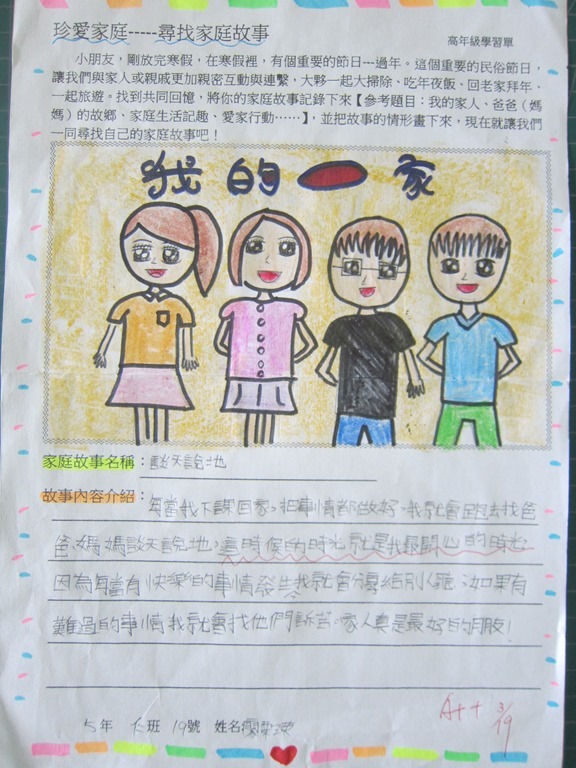 珍愛家庭-----尋找家庭故事
高年級學習單
小朋友，剛放完寒假，在寒假裡，有個重要的節日---過年。這個重要的民俗節日，
讓我們與家人或親戚更加親密互動與連繫，大夥一起大掃除、吃年夜飯、回老家拜年、
一起旅遊。找到共同回憶，將你的家庭故事記錄下來【參考題目：我的家人、爸爸(媽
媽)的故鄉、家庭生活記趣、愛家行動……】，並把故事的情形畫下來，現在就讓我們
一同尋找自己的家庭故事吧！
我的一家
家庭故事名稱：談天說地
故事內容介紹：每當我下課回家，把事情都做好，我就會跑去找爸
爸、媽媽談天說地，這時候的時光就是我最開心的時光
因為每當有快樂的事情發生我就會分享給別人聽；如果有
難過的事情我就會找他們訴苦。家人真是最好的朋友！
A++ 3/19
5年 班 19號 姓名